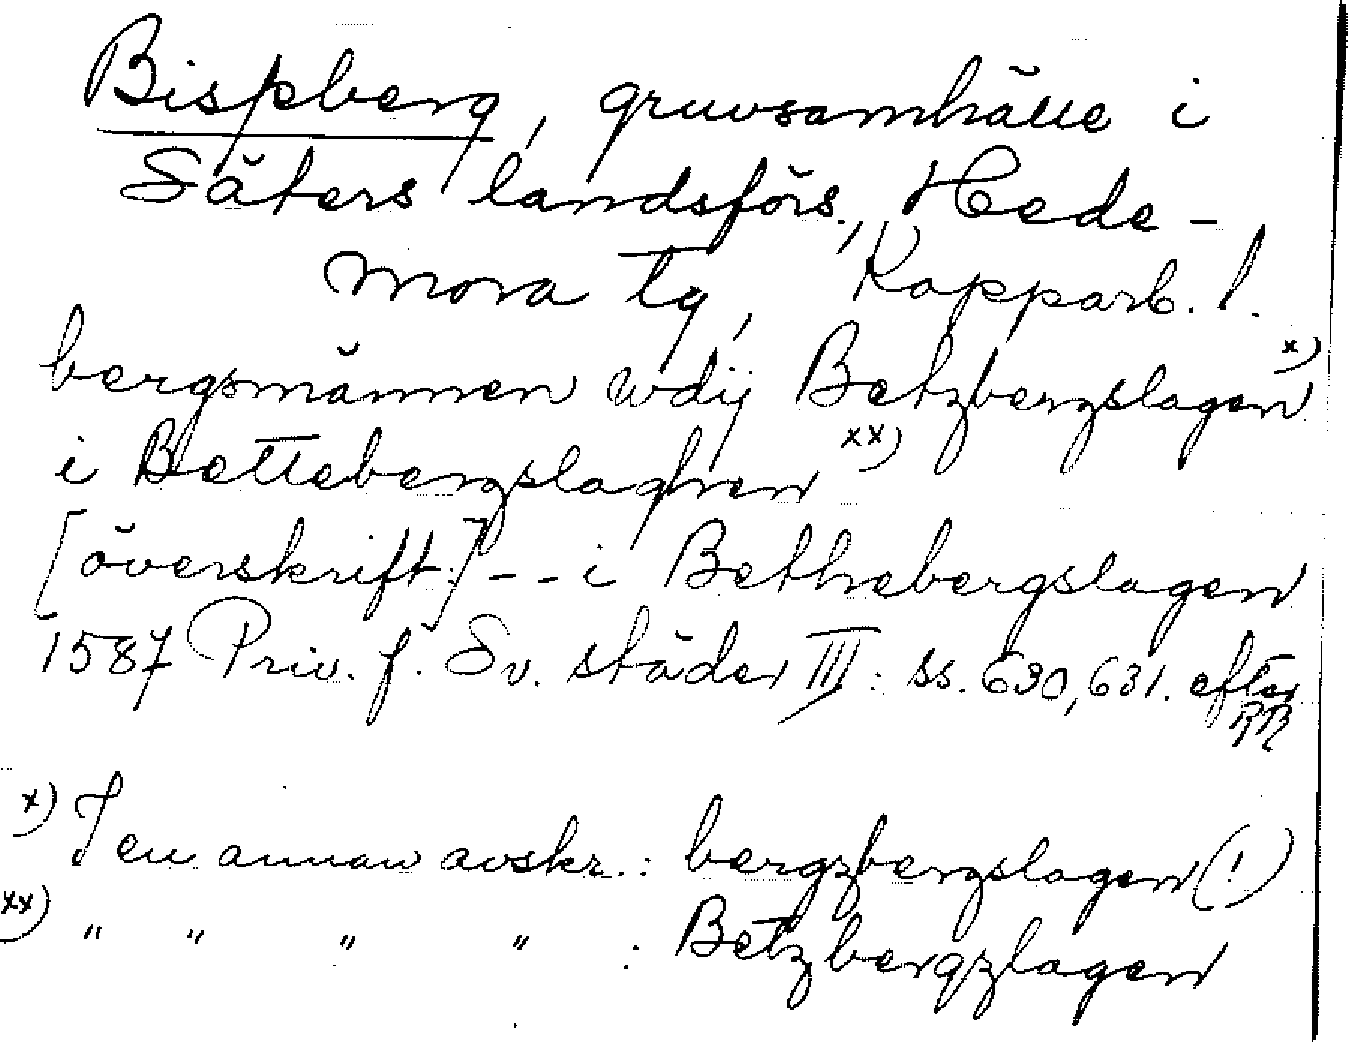 Bispberg, gruvsamhälle i
Säters landsförs., Hede-
mora tg, Kopparb. l.
bergsmännen wdij Betzbergslagen x)
i Bettebergslaghen xx)
[överskrift] - - i Bethebergslagen
1587 Priv. f. Sv. städer III: ss. 630, 631. efter
RR
x) I en annan avskr.: bergzbergslagen (!)
xx) " " " " : Betzbergzlagen